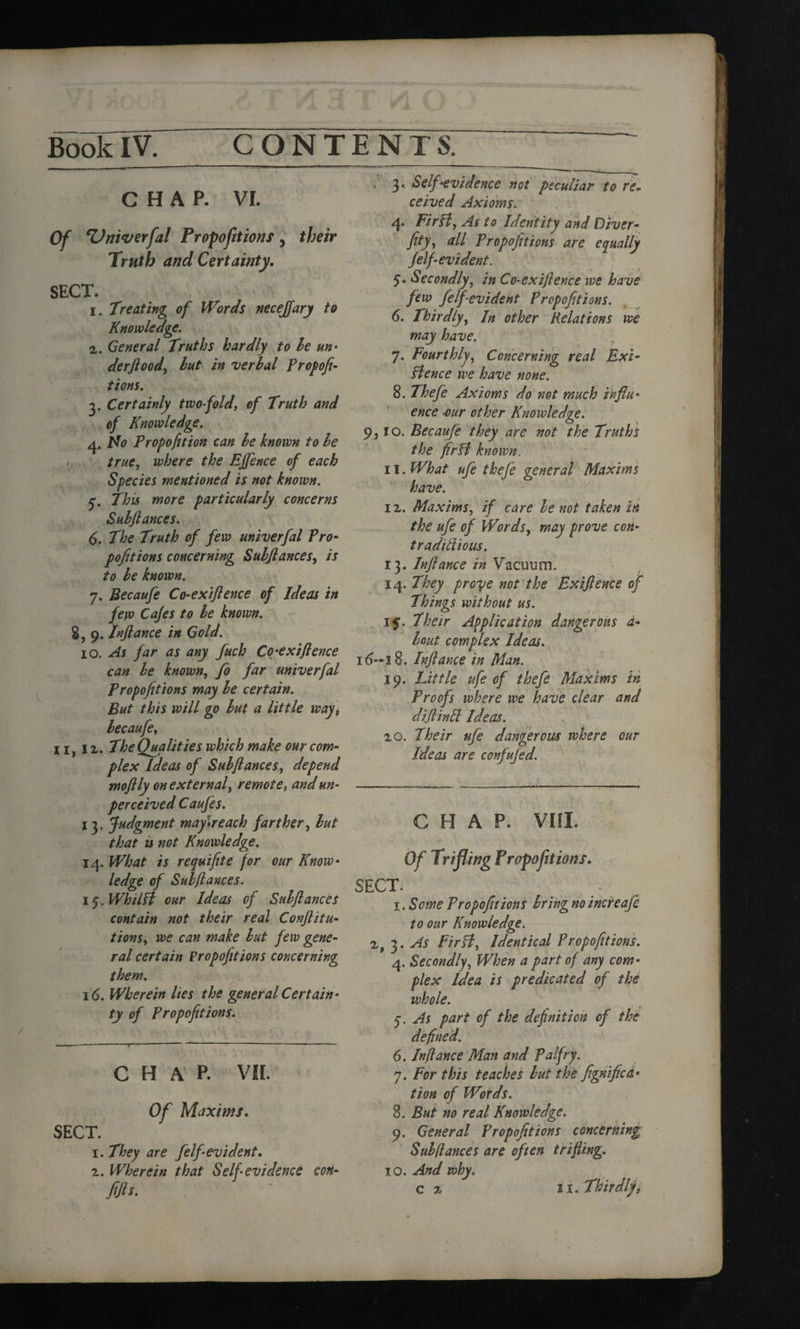 Book IV. CONTENTS.
CHAP. VI.
Of Univerſal Propoſitions, their
Truth and Certainty.
SECT.
1. Treating of Words neceſſary to
Knowledge.
2. General Truths hardly to be un-
derſtood, but in verbal Propoſi-
tions.
3. Certainly two-fold, of Truth and
of Knowledge.
4. No Propoſition can be known to be
true, where the Eſſence of each
Species mentioned is not known.
5. This more particularly concerns
Subſtances.
6. The Truth of few univerſal Pro-
poſitions concerning Subſtances, is
to be known.
7. Becauſe Co-exiſtence of Ideas in
few Caſes to be known.
8, 9. Inſtance in Gold.
10. As far as any ſuch Co-exiſtence
can be known, ſo far univerſal
Propoſitions may be certain.
But this will go but a little way,
becauſe,
11, 12. The Qualities which make our com-
plex Ideas of Subſtances, depend
moſtly on external, remote, and un-
perceived Cauſes.
13. Judgment may reach farther, but
that is not Knowledge.
14. What is requiſite for our Know-
ledge of Subſtances.
15. Whilſt our Ideas of Subſtances
contain not their real Conſtitu-
tions, we can make but few gene-
ral certain Propoſitions concerning
them.
16. Wherein lies the general Certain-
ty of Propoſitions.
CHAP. VII.
Of Maxims.
SECT.
1. They are ſelf-evident.
2. Wherein that Self-evidence con-
ſiſts.
3. Self-evidence not peculiar to re-
ceived Axioms.
4. Firſt, As to Identity and Diver-
ſity, all Propoſitions are equally
ſelf-evident.
5. Secondly, in Co-exiſtence we have
few ſelf-evident Propoſitions.
6. Thirdly, In other Relations we
may have.
7. Fourthly, Concerning real Exi-
ſtence we have none.
8. Theſe Axioms do not much influ-
ence our other Knowledge.
9, 10. Becauſe they are not the Truths
the firſt known.
11. What uſe theſe general Maxims
have.
12. Maxims, if care be not taken in
the uſe of Words, may prove con-
tradictious.
13. Inſtance in Vacuum.
14. They prove not the Exiſtence of
Things without us.
15. Their Application dangerous a-
bout complex Ideas.
16--18. Inſtance in Man.
19. Little uſe of theſe Maxims in
Proofs where we have clear and
diſtinct Ideas.
20. Their uſe dangerous where our
Ideas are confuſed.
CHAP. VIII.
Of Trifling Propoſitions.
SECT.
1. Some Propoſitions bring no increaſe
to our Knowledge.
2, 3. As Firſt, Identical Propoſitions.
4. Secondly, When a part of any com-
plex Idea is predicated of the
whole.
5. As part of the definition of the
defined.
6. Inſtance Man and Palfry.
7. For this teaches but the ſignifica-
tion of Words.
8. But no real Knowledge.
9. General Propoſitions concerning
Subſtances are often trifling.
10. And why.
c 2 11. Thirdly,